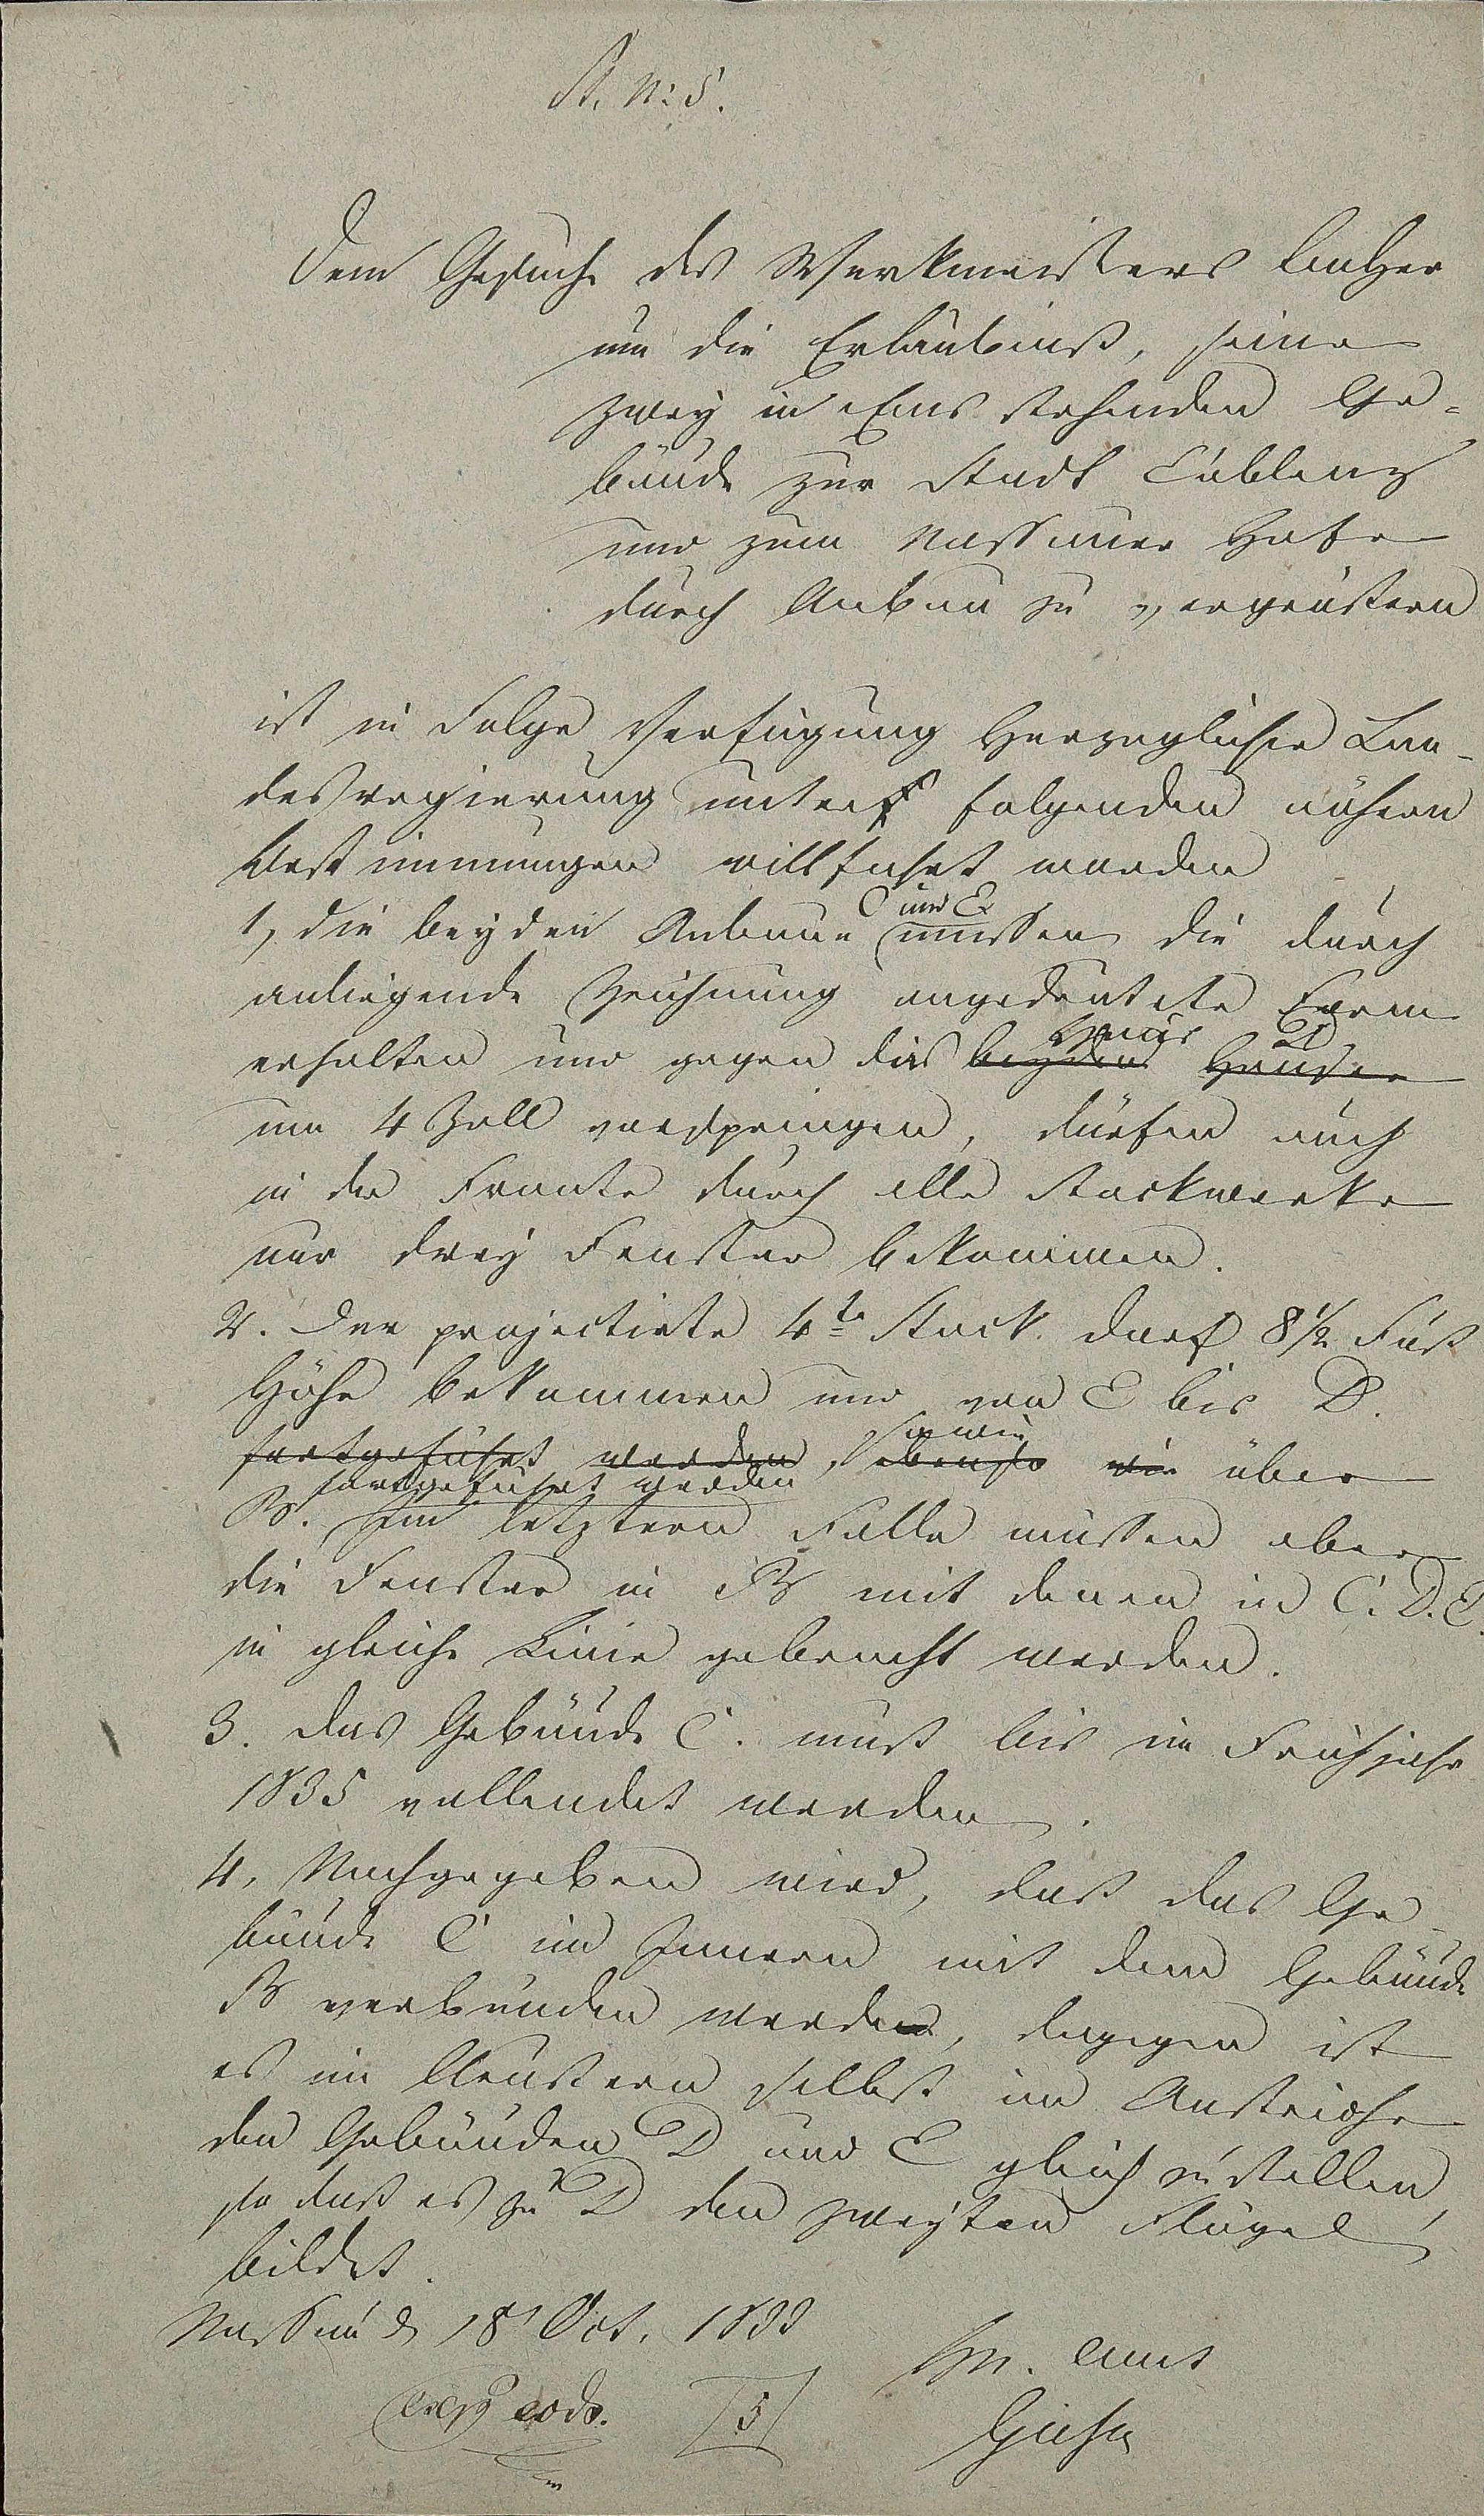 St. No: 5.
Dem Gesuche des Werkmeisters
um die Erlaubniß, seine
zwey in Ems stehenden Ge-
bäude zur Stadt Coblenz
und zum Nassauer Hofe
durch Anbau zu vergrößern
ist in Folge Verfügung Herzoglicher Lan-
desregierung unter folgenden nähern
Bestimmungen willfahrt worden
1, die beyden Anbaue C und E müssen die durch
anliegende Zeichnung angedeutete Form
erhalten und gegen das beyden Häuser Haus D
um 4 Zoll vorspringen, dürfen auch
in der Fronte durch alle Stockwerke
nur drey Fenster bekommen.
2. Der projectirte 4te Stock darf 8 1/2 Fuß
Höhe bekommen und von E bis D.
fortgeführt werden, ebenso wie sowie über
B. fortgeführt werden Im letztern Falle müssen aber
die Fenster in B mit denen in C. D. E.
in gleiche Linie gebracht werden.
3. Das Gebäude C. muß bis im Frühjahr
1835 vollendet werden.
4, Nachgegeben wird, daß das Ge-
bäude C im Innern mit dem Gebäude
B verbunden werde, dagegen ist
es im Aeußern selbst im Anstriche
den Gebäuden D und E gleich zu stellen,
so daß es zu D den zweyten Flügel
bildet.
Nassau d 18 Oct. 1833
Hzl. Amt
exp eod. 5